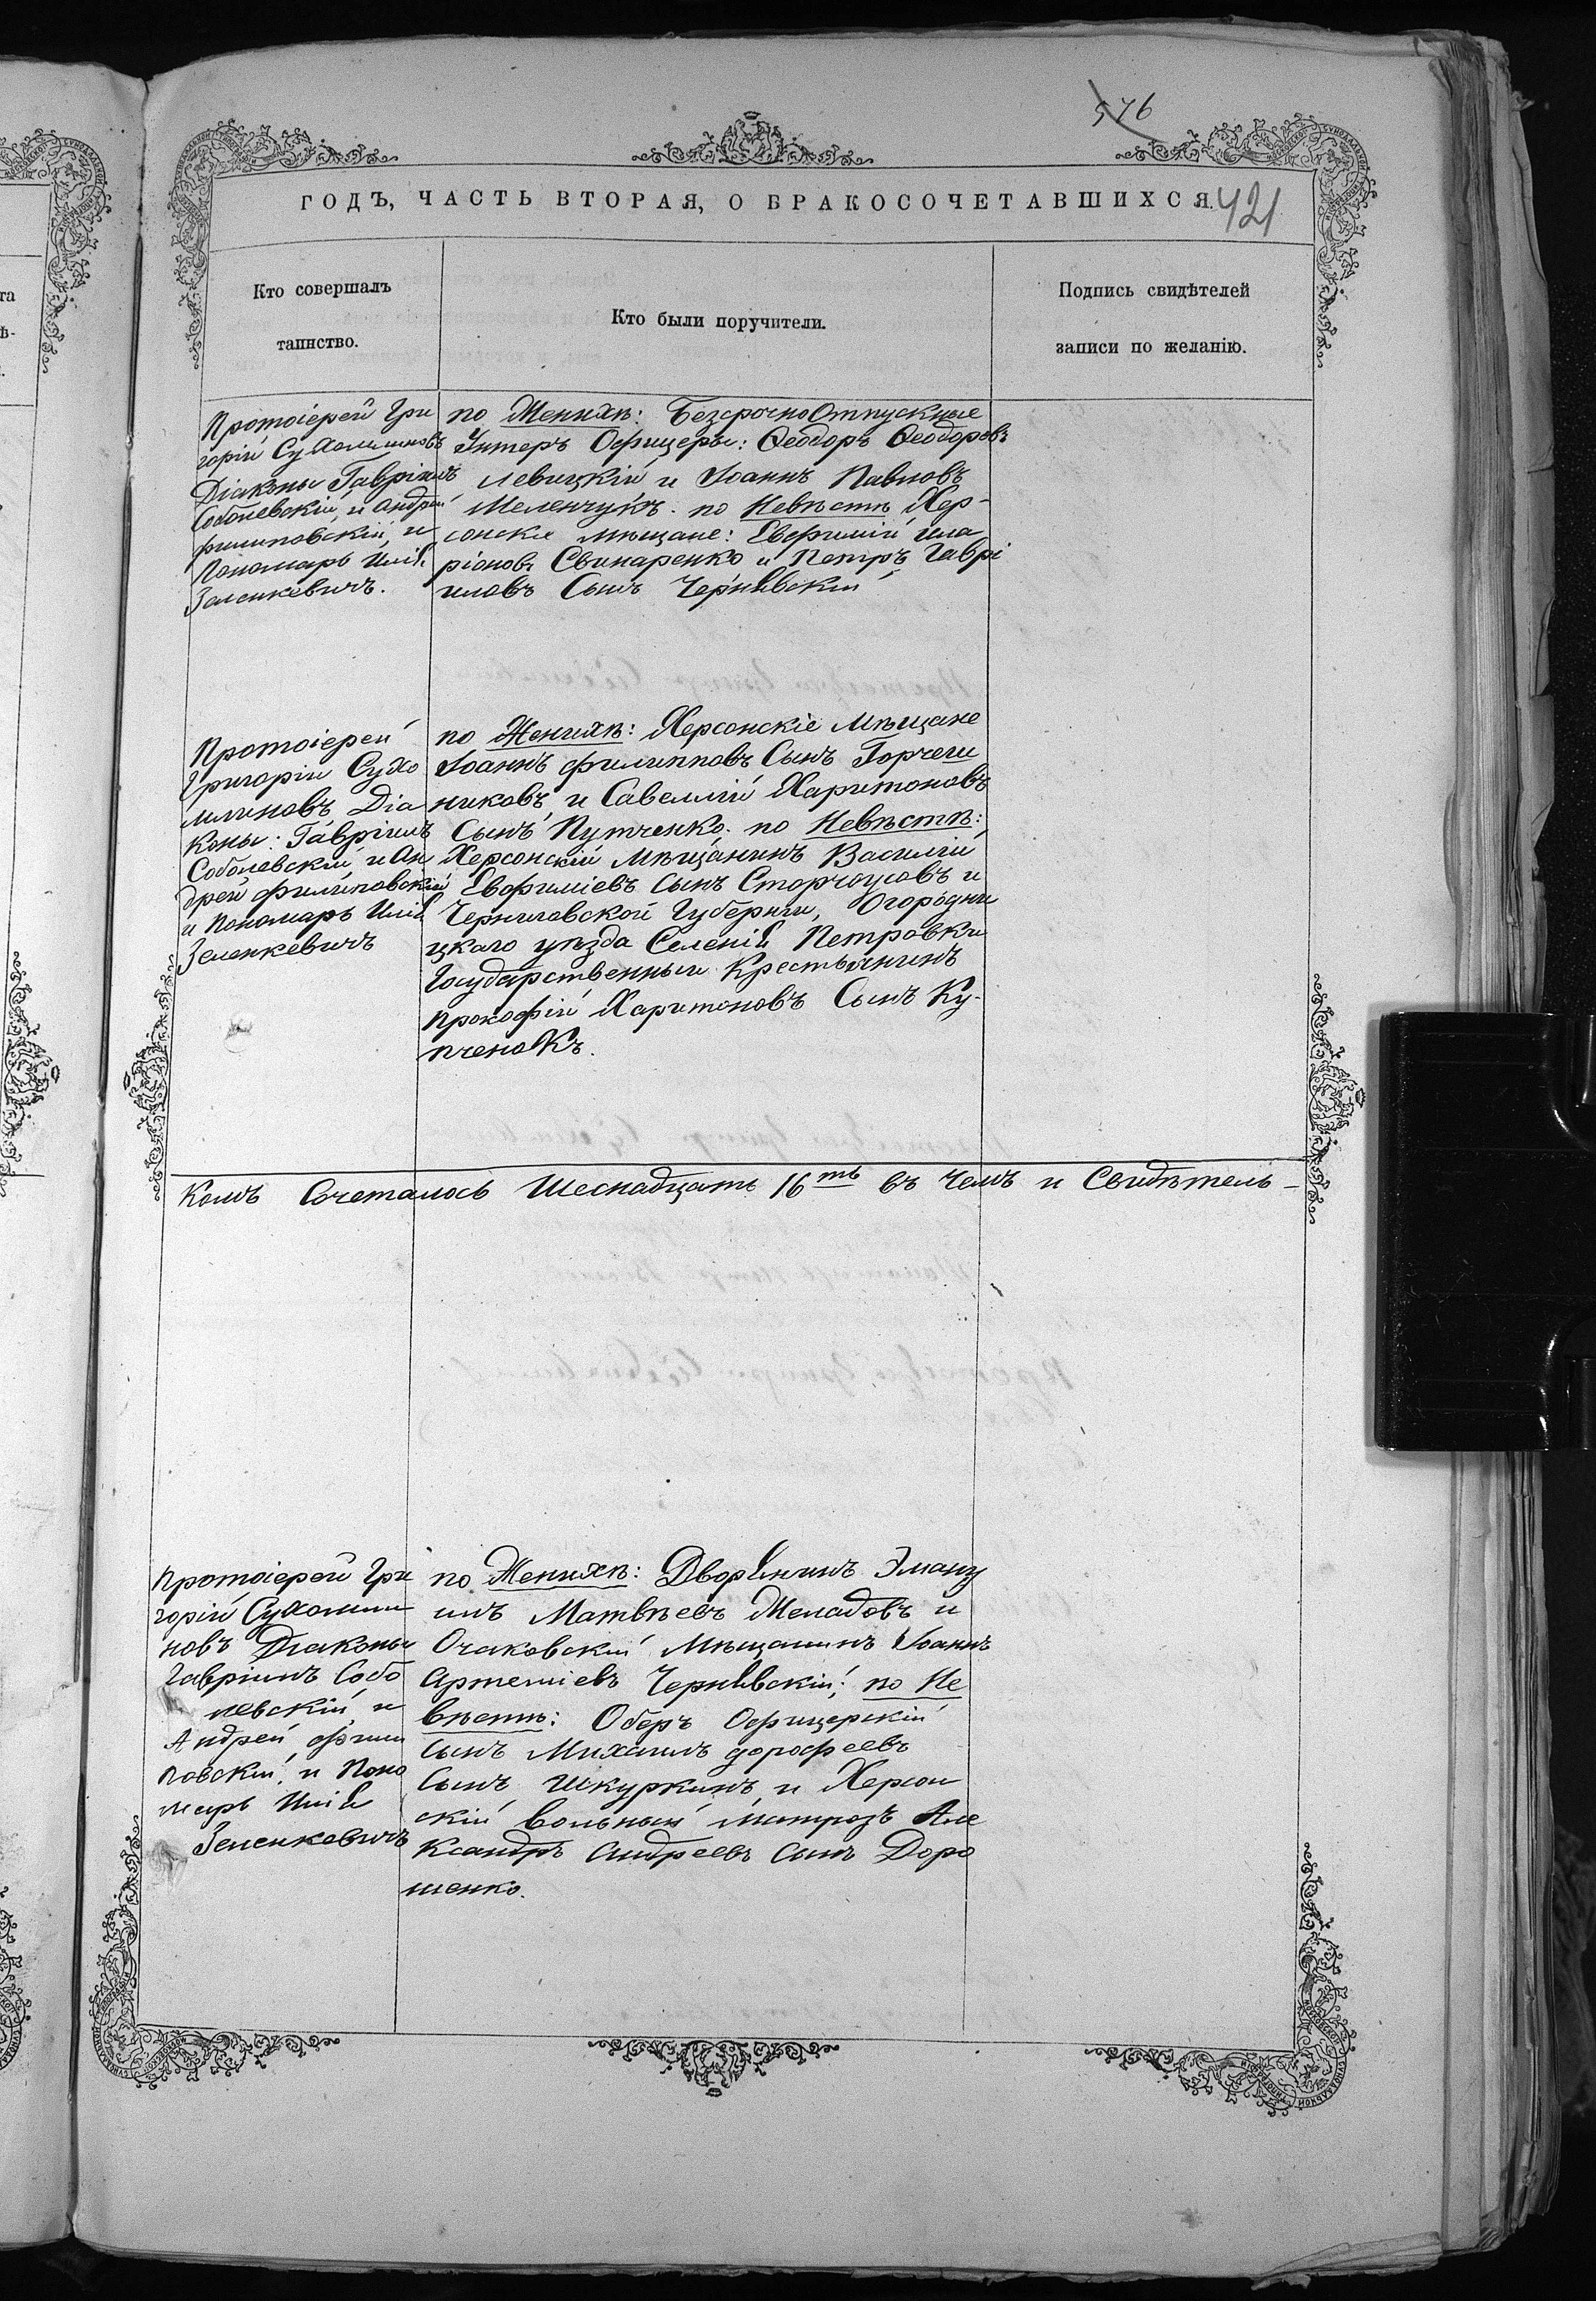 576
ГОДЪ, ЧАСТЬ ВТОРАЯ, О БРАКОСОЧЕТАВШИХСЯ. 421
Кто совершалъ
таинство.
Кто были поручители.
Подпись свидѣтелей
записи по желанію.
Протоіерей Гри
горій Сухомлиновъ
Діаконы Гавріилъ
Соболевскій, и Андрей
филиповскій, и
Пономарь Илія
Зеленкевичъ.
по Женихѣ: БезсрочноОтпускные
Унтеръ Офицеры: Ѳеодоръ Ѳеодоровъ
Левицкій и Іоаннъ Павловъ
Меленчукъ. по Невѣстѣ Хер-
сонскіе мѣщане: Евфимій Ила
ріоновъ Свинаренко и Петръ Гаврі
иловъ Сынъ Чернявскій
Протоіерей
Григорій Сухо
млиновъ Діа
коны: Гавріилъ
Соболевскій и Ан
дрей филиповскій
и Пономарь Илія
Зеленкевичъ
по Женихѣ: Херсонскіе Мѣщане
Іоаннъ филипповъ Сынъ Горчеши
никовъ, и Савеллій Харитоновъ
Сынъ Путченко. по Невѣстѣ:
Херсонскій Мѣщанинъ Василій
Евфиміевъ Сынъ Сторчоусовъ и
Черниговской Губерніи, Огородни
цкаго уѣзда Селенія Петровки
Государственный Крестьянинъ
Прокофій Харитоновъ Сынъ Ку-
пченокъ.
Комъ Сочеталось Шеснадцать 16ть въ чемъ и Свидѣтель-
Протоіерей Гри
горій Сухомли
новъ Діаконы
Гавріилъ Собо
левскій, и
Андрей фили
повскій, и Поно
марь Илія
Зеленкевичъ
по Женихѣ: Дворянинъ Эману
илъ Матвѣевъ Меладовъ и
Очаковскій Мѣщанинъ Іоаннъ
Артеміевъ Чернявскій; по Не
вѣстѣ: Оберъ Офицерскій
Сынъ Михаилъ дорофеевъ
Сынъ Шкуркинъ, и Херсон
скій вольный матрозъ Але
Ксандръ Андреевъ Сынъ Доро
шенко.